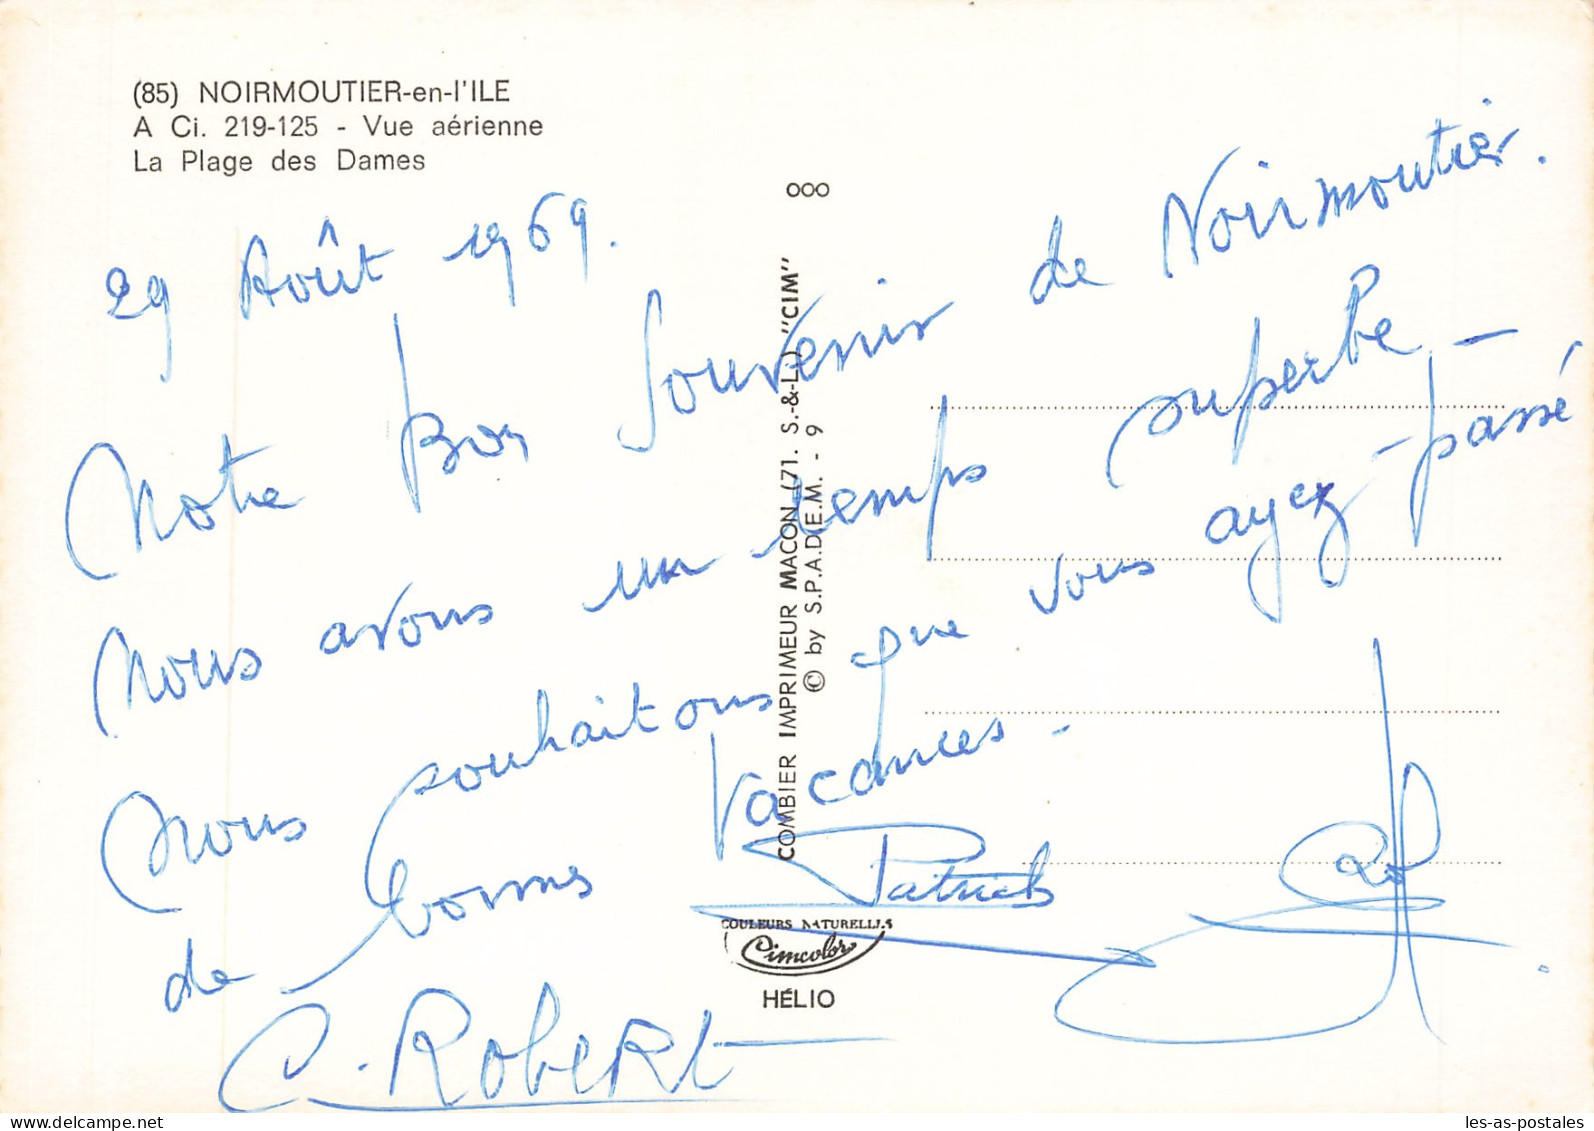 (85) NOIRMOUTIER-en-l'ILE
A Ci. 219-125 - Vue aérienne
La Plage des Dames
29 Août 1969.
Notre Bon Souvenir de Noirmoutier.
Nous avons un temps superbe -
Nous souhaitons que vous ayez - passé
de bonnes vacances -
Patrick
C. Robert
000
COMBIER IMPRIMEUR MACON (71. S.-&-L.) "CIM"
© by S.P.A.D.E.M. - 9
COULEURS NATURELLES
Cimcolor
HÉLIO
les-as-postales.com